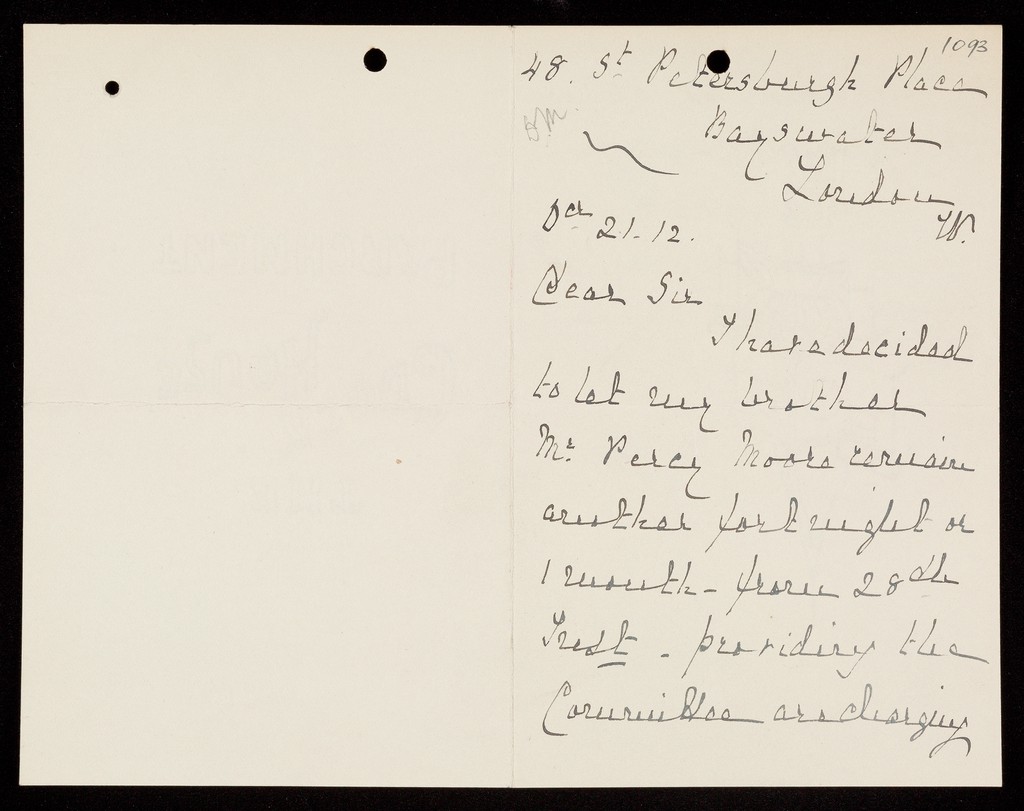 1093
48. St Petersburgh Place
Bayswater
London
W.
21-12.
Dear Sir
I have decided
to let my brother
Mr. Percy Moore remain
another fortnight or
1 month - from 28th
Inst - providing the
Committee are charging